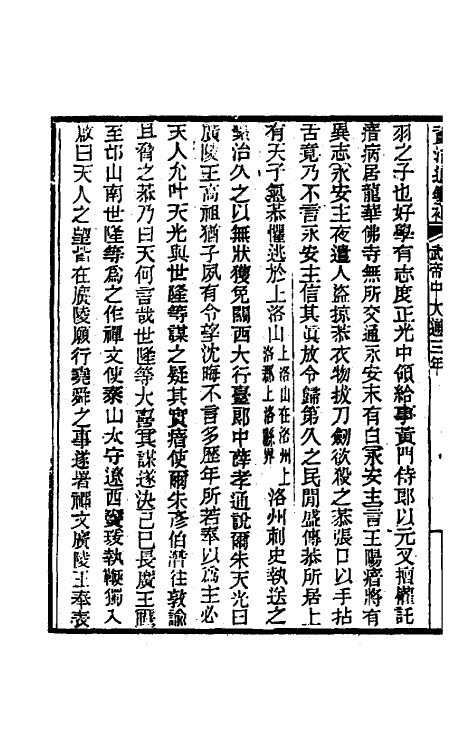 資治通鑑補 武帝中大通三年
羽之子也好學有志度正光中領給事黃門侍郎以元叉擅權託
瘖病居龍華佛寺無所交通永安末有白永安主言王陽瘖將有
異志永安主夜遣人盜掠恭衣物拔刀劍欲殺之恭張口以手拈
舌竟乃不言永安主信其真放令歸第久之民間盛傳恭所居上
有天子氣恭懼逃於上洛山上洛山在洛州上洛郡上洛縣界洛州刺史執送之
繫治久之以無狀獲免關西大行臺郎中薛孝通說爾朱天光曰
廣陵王高祖猶子夙有令望沈晦不言多歷年所若奉以為主必
天人允叶天光與世隆等謀之疑其實瘖使爾朱彥伯潛往敦諭
且脅之恭乃曰天何言哉世隆等大喜其謀遂決己巳長廣王曄
至邙山南世隆等為之作禪文使泰山太守遼西竇瑗執鞭獨入
啟曰天人之望皆在廣陵願行堯舜之事遂署禪文廣陵王奉表